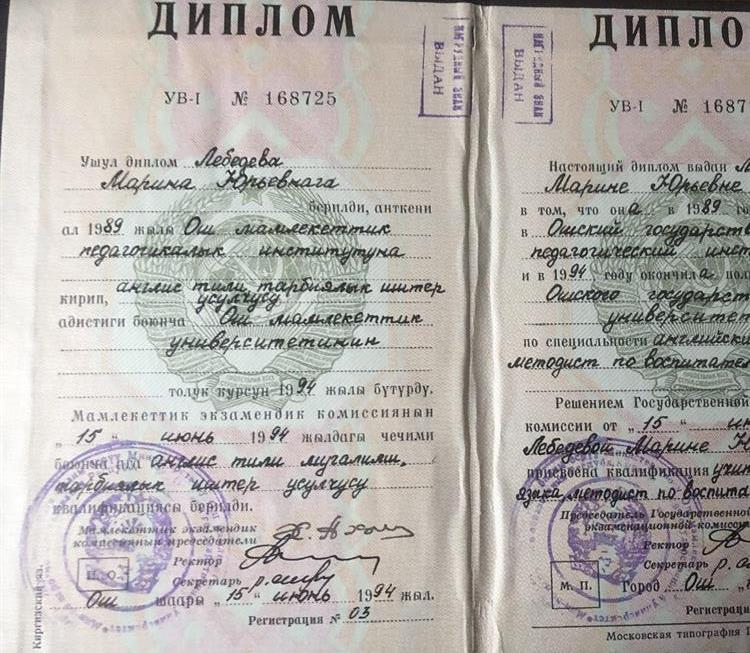 ДИПЛОМ
НАГРУДНЫЙ ЗНАК
ВЫДАН
УВ-I № 168725
Ушул диплом Лебедева
Марина Юрьевнага
берилди, анткени
ал 1989 жылы Ош мамлекеттик
педагогикалык институтуна
англис тили тарбиялык иштер
кирип, усулчусу
адистиги боюнча Ош мамлекеттик
университетинин
толук курсун 1994 жылы бүтүрдү.
Мамлекеттик экзамендик комиссиянын
„15“ июнь 1994 жылдагы чечими
боюнча ага англис тили мугалими,
тарбиялык иштер усулчусу
квалификациясы берилди.
Мамлекеттик экзамендик
комиссиянын председатели
Ректор
Секретарь
М. О.
Ош шаары „15“ июнь 1994 жыл.
Регистрация № 03
Киргизский яз.
ДИПЛО
НАГРУДНЫЙ ЗНАК
ВЫДАН
УВ-I № 1687
Настоящий диплом выдан Л
Марине Юрьевне
в том, что она в 1989 го
в Ошский государств
педагогический инст
и в 1994 году окончила пол
Ошского государст
университет
по специальности английски
методист по воспитател
Решением Государственной
комиссии от „15“ ию
Лебедевой Марине Ю
присвоена квалификация учит
языка, методист по воспита
Председатель Государственной
экзаменационной комисс
Ректор
Секретарь
М. П.
Город Ош „
Регистраци
Московская типография Г